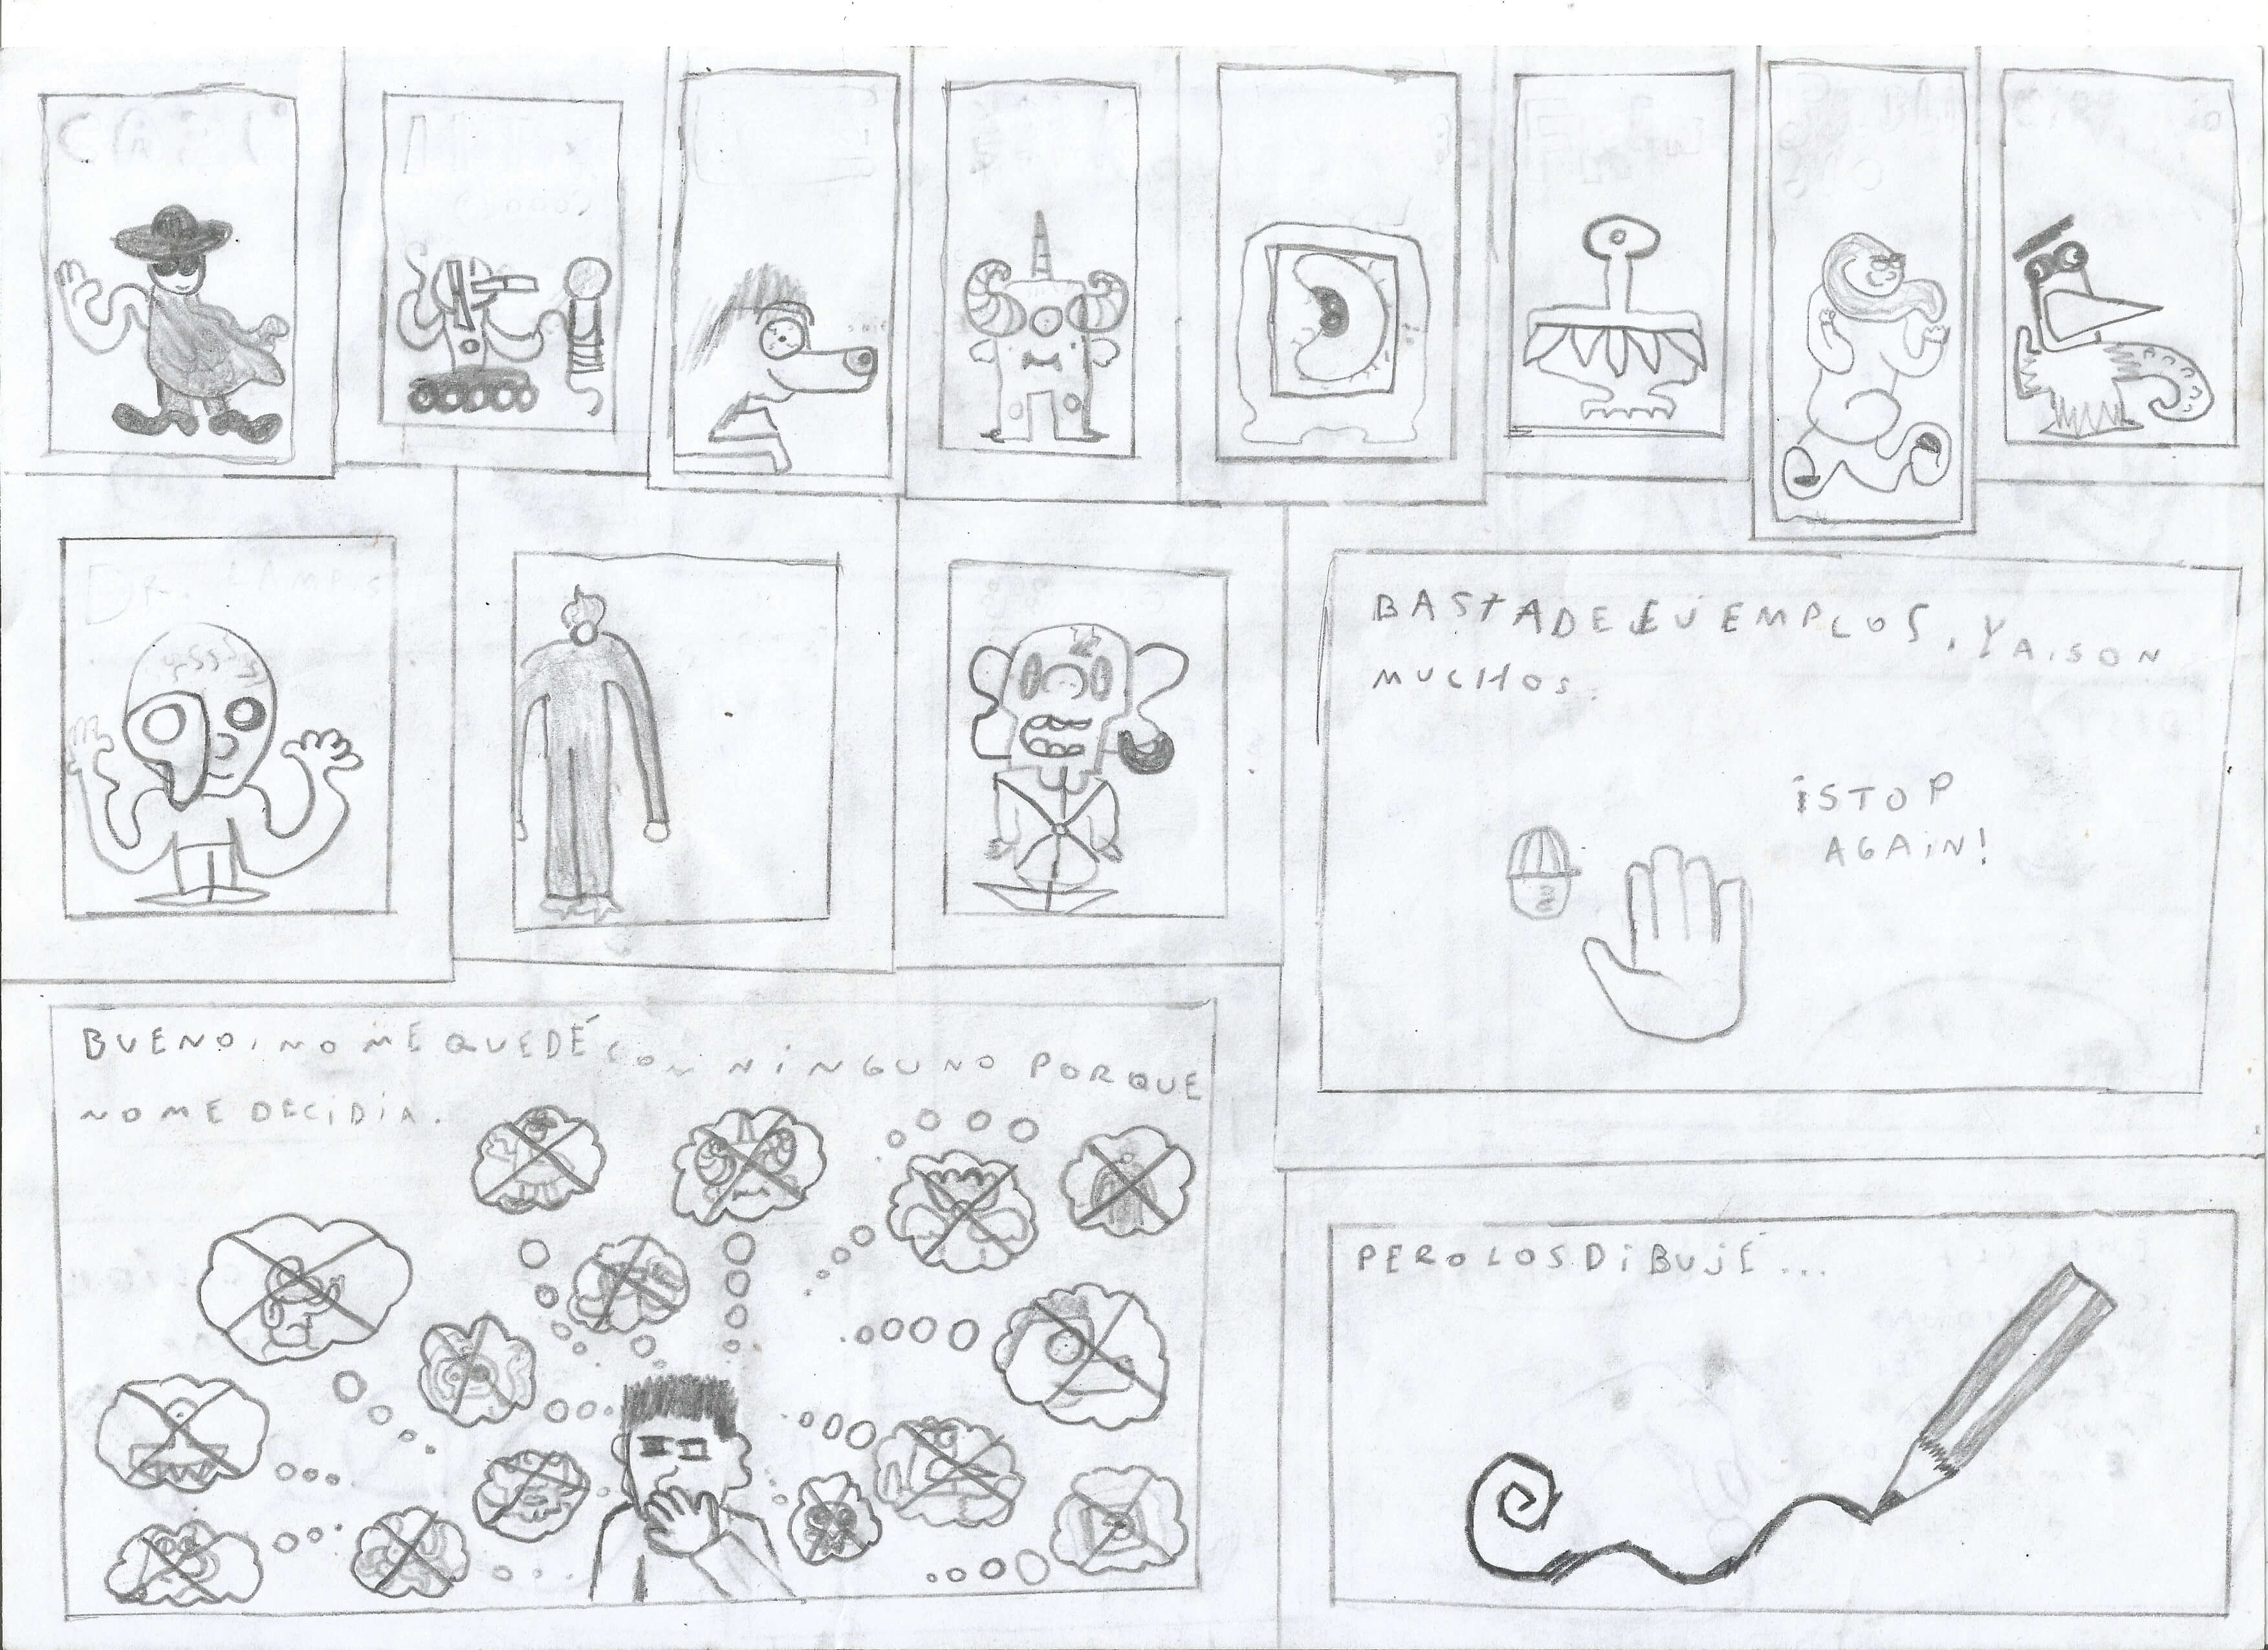 DR. LAMPS
BASTA DE EJEMPLOS, YA SON
MUCHOS.
¡STOP
AGAIN!
BUENO, NO ME QUEDÉ CON NINGUNO PORQUE
NO ME DECIDIA.
PERO LOS DIBUJÉ...